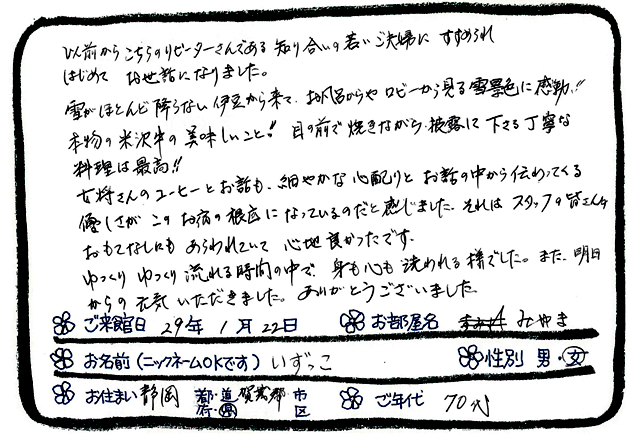 以前からこちらのリピーターさんである 知り合いの若いご夫婦に すすめられ
はじめて お世話になりました。
雪がほとんど降らない伊豆から来て、お風呂からや ロビーから見る雪景色に感動!!
本物の米沢牛の美味しいこと!! 目の前で焼きながら、披露して下さる丁寧な
料理は最高!!
女将さんのコーヒーとお話も、細やかな心配りと お話の中から伝わってくる
優しさが このお宿の根底になっているのだと感じました。それは スタッフの皆さんの
おもてなしにも あらわれていて 心地良かったです。
ゆっくり ゆっくり 流れる時間の中で、身も心も 洗われる様でした。また、明日
からの 元気 いただきました。ありがとうございました。
ご来館日 29年 1月 22日 お部屋名 みやま
お名前(ニックネームOKです) いずっこ 性別 男・女
お住まい 静岡 都・道・府・県 賀茂郡 市 区 ご年代 70代